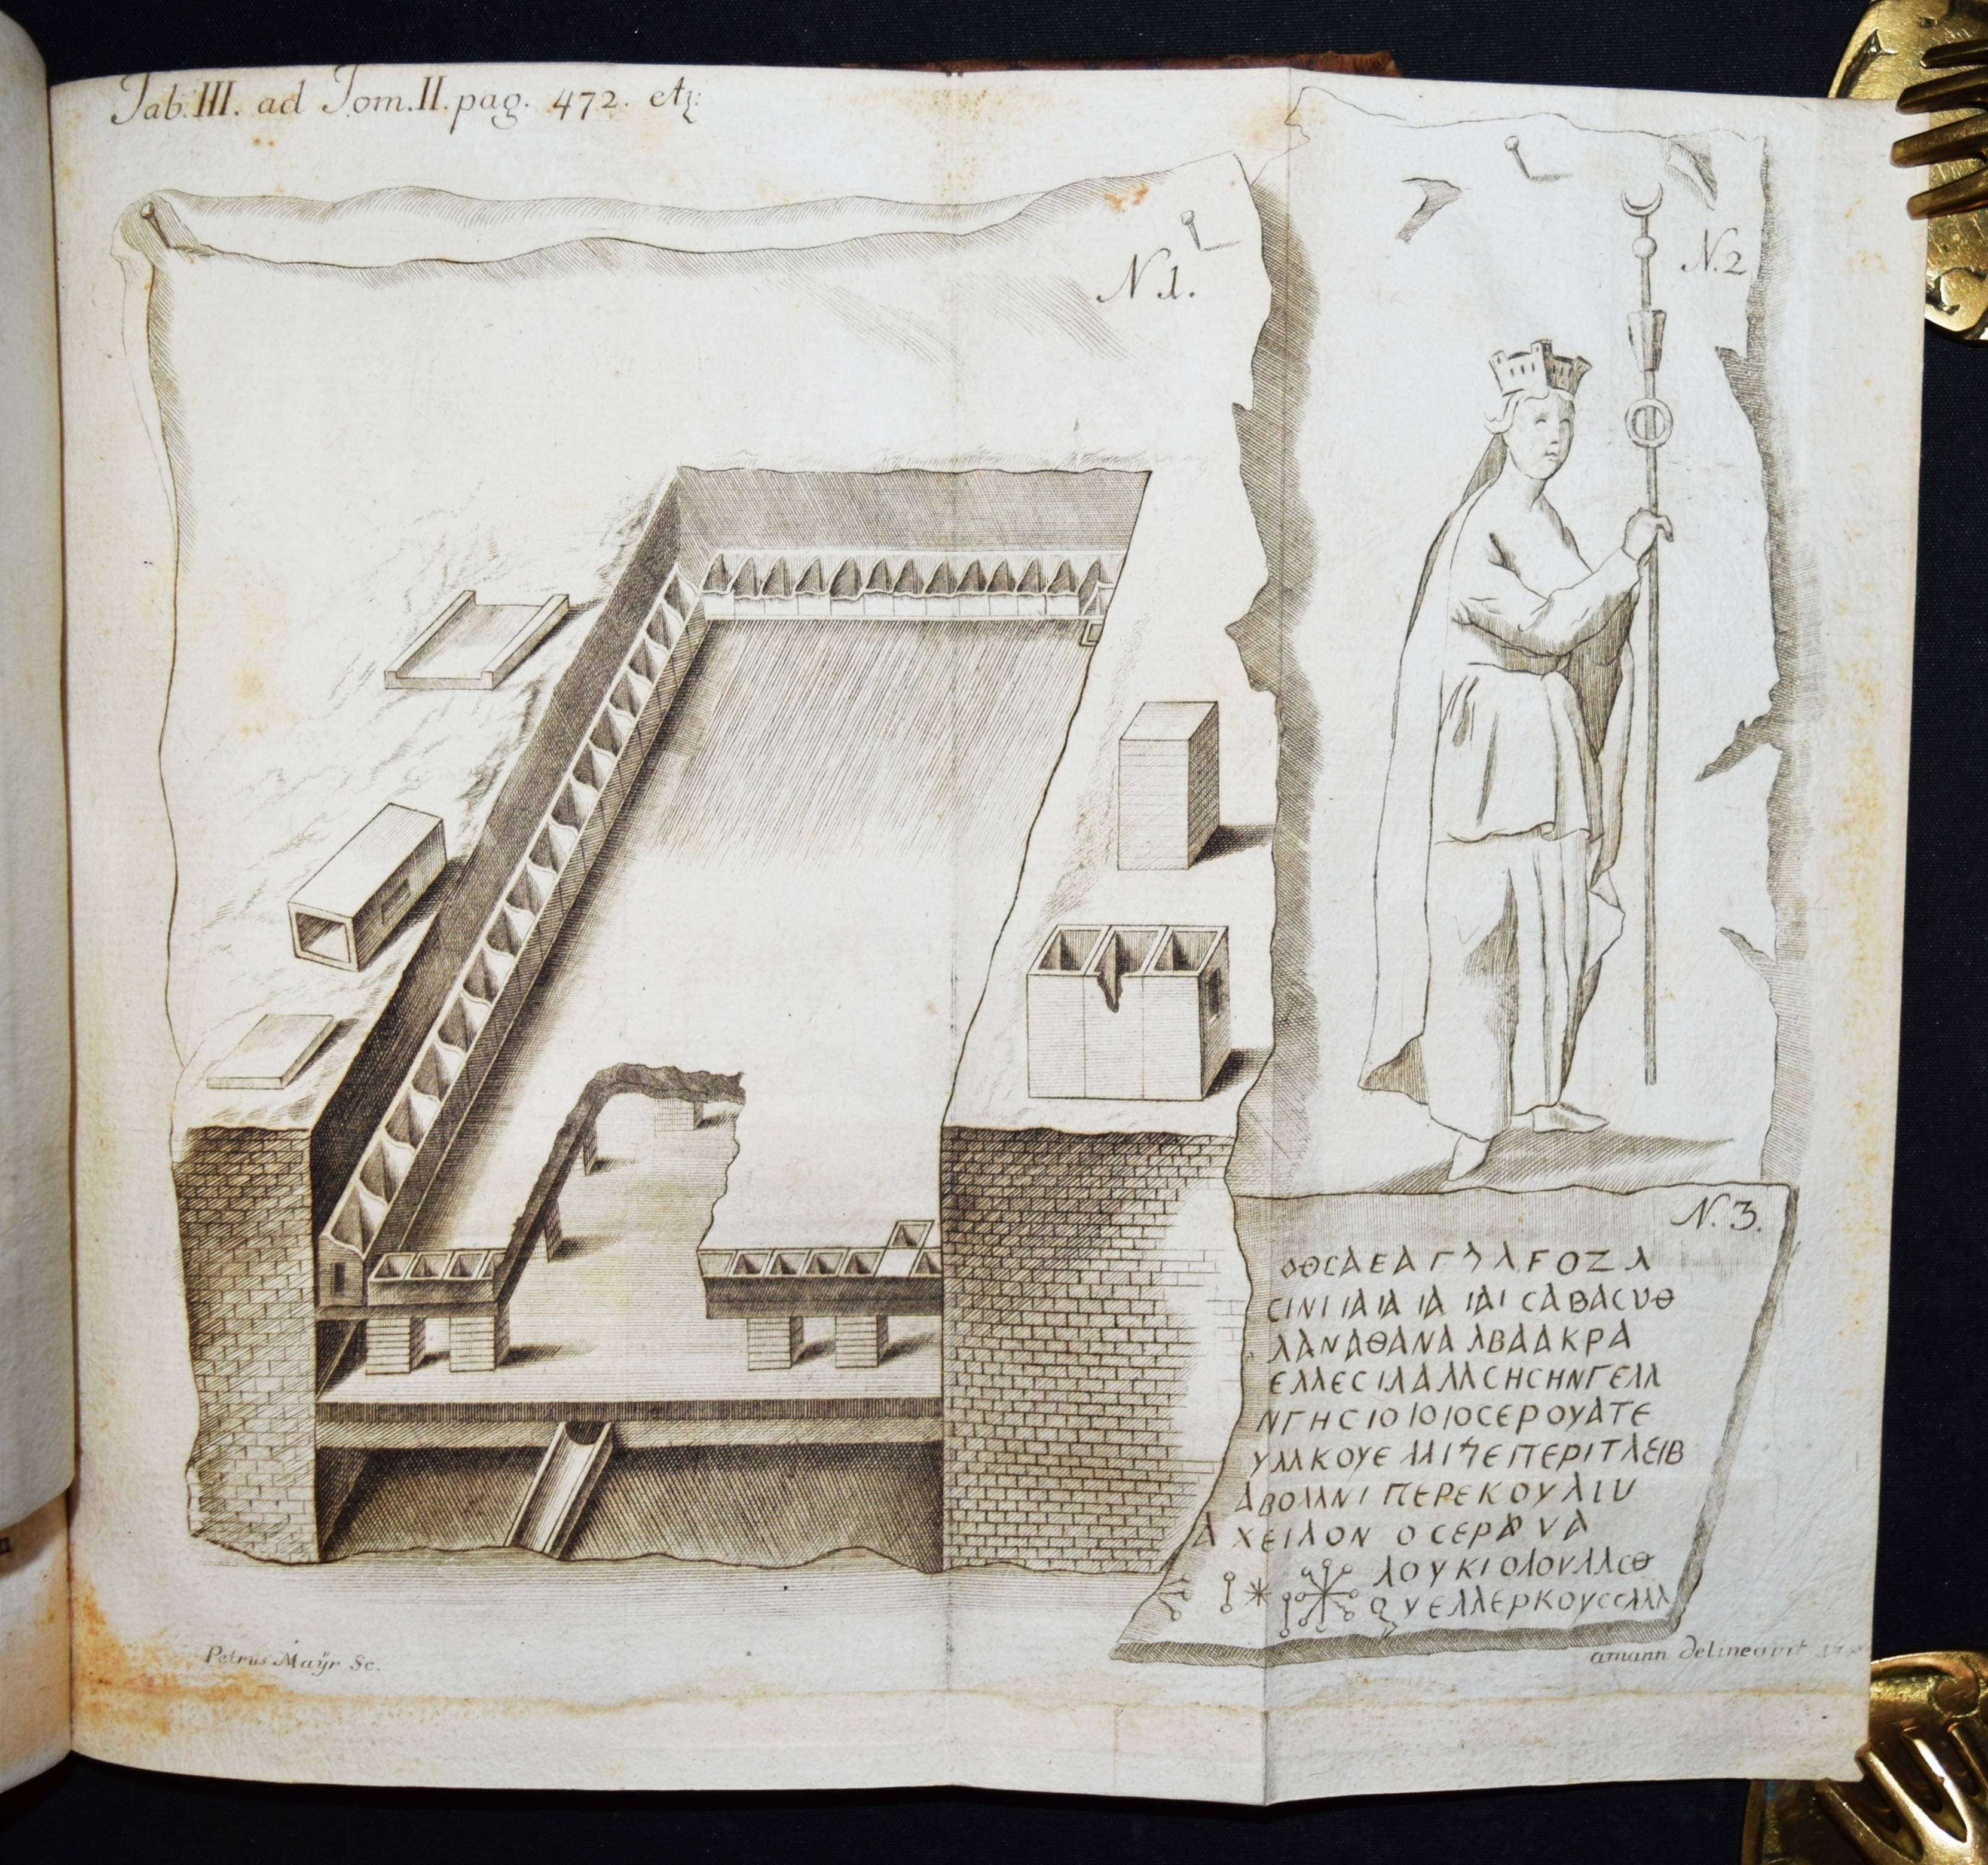 Tab. III. ad Tom. II. pag. 472. etz:
N 1.
N. 2
N. 3.
ΟΘCΑΕΑ Γ Λ F O Z Λ
CΙΝΙ ΙΑ ΙΑ ΙΑ ΙΑΙ CΑΒΑCΥΘ
ΛΑΝΑΘΑΝΑ ΛΒΑΑΚΡΑ
ΕΛΛΕC ΙΛΑΛΛCΗCΗΝΓΕΛΛ
ΝΓΗC ΙΟ ΙΟ ΙΟCΕΡΟΥΑΤΕ
ΥΛΛΚΟΥΕ ΠΕΡΙΤΛΕΙΒ
ΑΒΟΛΛΝΙ ΠΕΡΕΚΟΥΛΙU
ΑΧΕΙΛΟΝ ΟCΕΡ VΑ
ΛΟΥΚΙΟΛΟΥΛΛCΘ
ΥΕΛΛΕΡΚΟΥCCΛΛΛ
Petrus Maÿr Sc.
amann delineavit